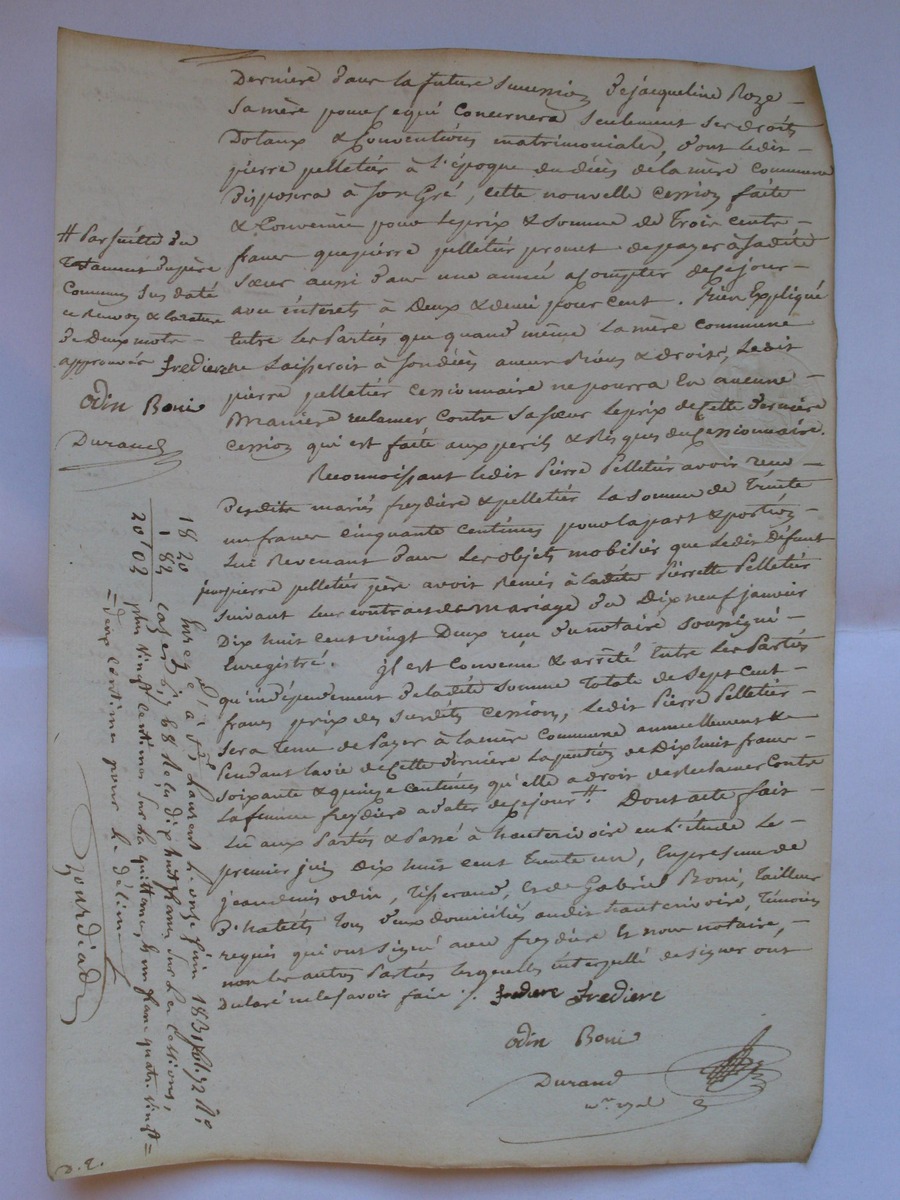 Derniere dans la future succession de jacqueline Roze —
Sa mère pour ce qui concernera seulement ses droits
Dotaux & Conventions matrimoniales, dont ledit —
pierre pelletier à l'époque du décès de la mère commune
Disposera à son Gré, cette nouvelle cession faite
& Convenue pour le prix & somme de Trois cents —
francs que pierre pelletier promet de payer à sadite
Sœur aussi dans une année à compter de ce jour —
avec intérets à Deux & demi pour cent. Bien Expliqué
entre les Parties que quand même la mère commune
ne Laisseroit à son décès aucuns Biens & droits, Ledit
pierre pelletier cessionnaire ne pourra en aucune —
Maniere réclamer contre sa sœur le prix de cette derniere
cession qui est faite aux perils & Risques du Cessionnaire.
Reconnoissant ledit Pierre Pelletier avoir reçu —
desdits mariés freydière & pelletier la somme de Trente
un francs cinquante centimes pour la part & portion —
Lui Revenant dans Les objets mobiliers que ledit défunt
jean pierre pelletier père avoit Remis à ladite Pierrette Pelletier
suivant leur contrat de mariage du Dix neuf janvier
Dix huit cent vingt Deux reçu du notaire soussigné —
Enregistré. jl est Convenu & arrêté entre Les Parties
qu'indépendamment de ladite somme Totale de Sept cent —
francs prix des susdites cessions, Ledit Pierre Pelletier —
sera tenu de Payer à la mère commune annuellement &
Pendant la vie de cette derniere la pention de Dix huit francs —
soixante & quinze centimes qu'elle a droit de réclamer contre
La femme freydière à dater de ce jour #. Dont acte fait —
Lu aux Parties & Passé à hauterivoire en l'étude Le —
premier juin Dix huit cent trente un, En presence de
jean denis odin, Tisserand, & de Gabriel Boni, Tailleur
D'habits tous deux domiciliés audit hauterivoire, Témoins
requis qui ont signé avec freydière Et nous notaire, —
non les autres Parties lesquelles interpellé de signer ont
declaré ne le savoir faire ./.
frediere Frediere
odin Boni
Durand
# Par suitte du
Testament du père
Commun sus daté
ce Renvoy & la rature
De Deux mots —
approuvés frediere
odin Boni
Durand
Enreg.é à S.t Laurent le onze juin 1831 fol. 92 R.o
cases 6, 7 & 8 Reçu dix huit francs sur les cessions,
plus vingt centimes sur la quittance, & un franc quatre vingt =
= deux centimes pour le décime
18 20
1 82
20 02
Gourdiad
D. E.